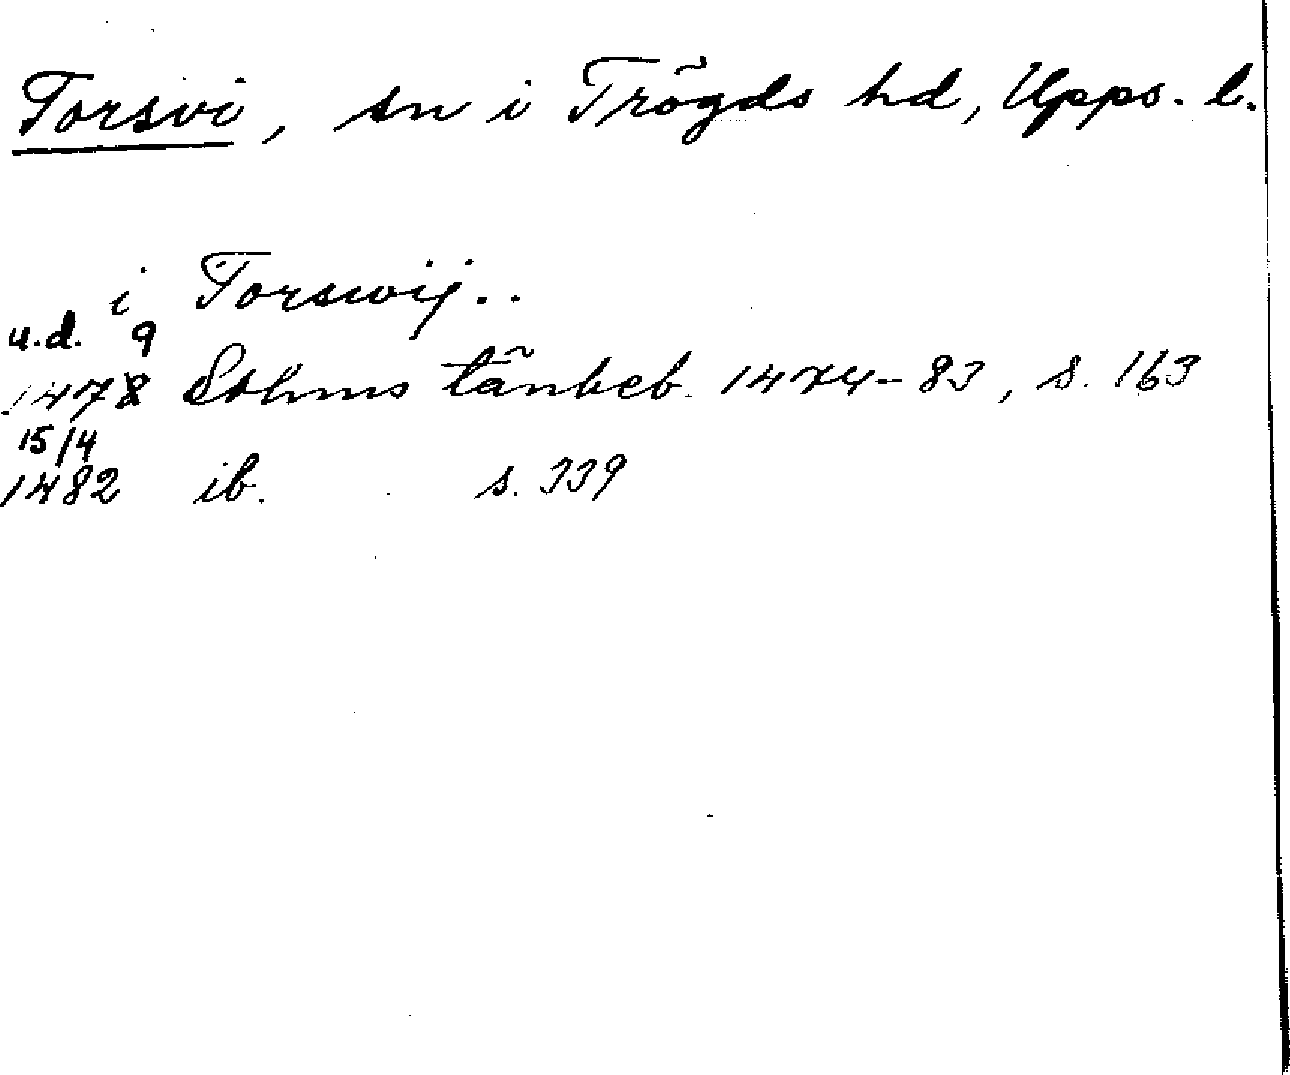 Torsvi, sn i Trögds hd, Upps. l.
i Torswij..
u.d. 9
1478 Sthms tänkeb. 1474-83, s. 163
15/4
1482 ib. s. 339